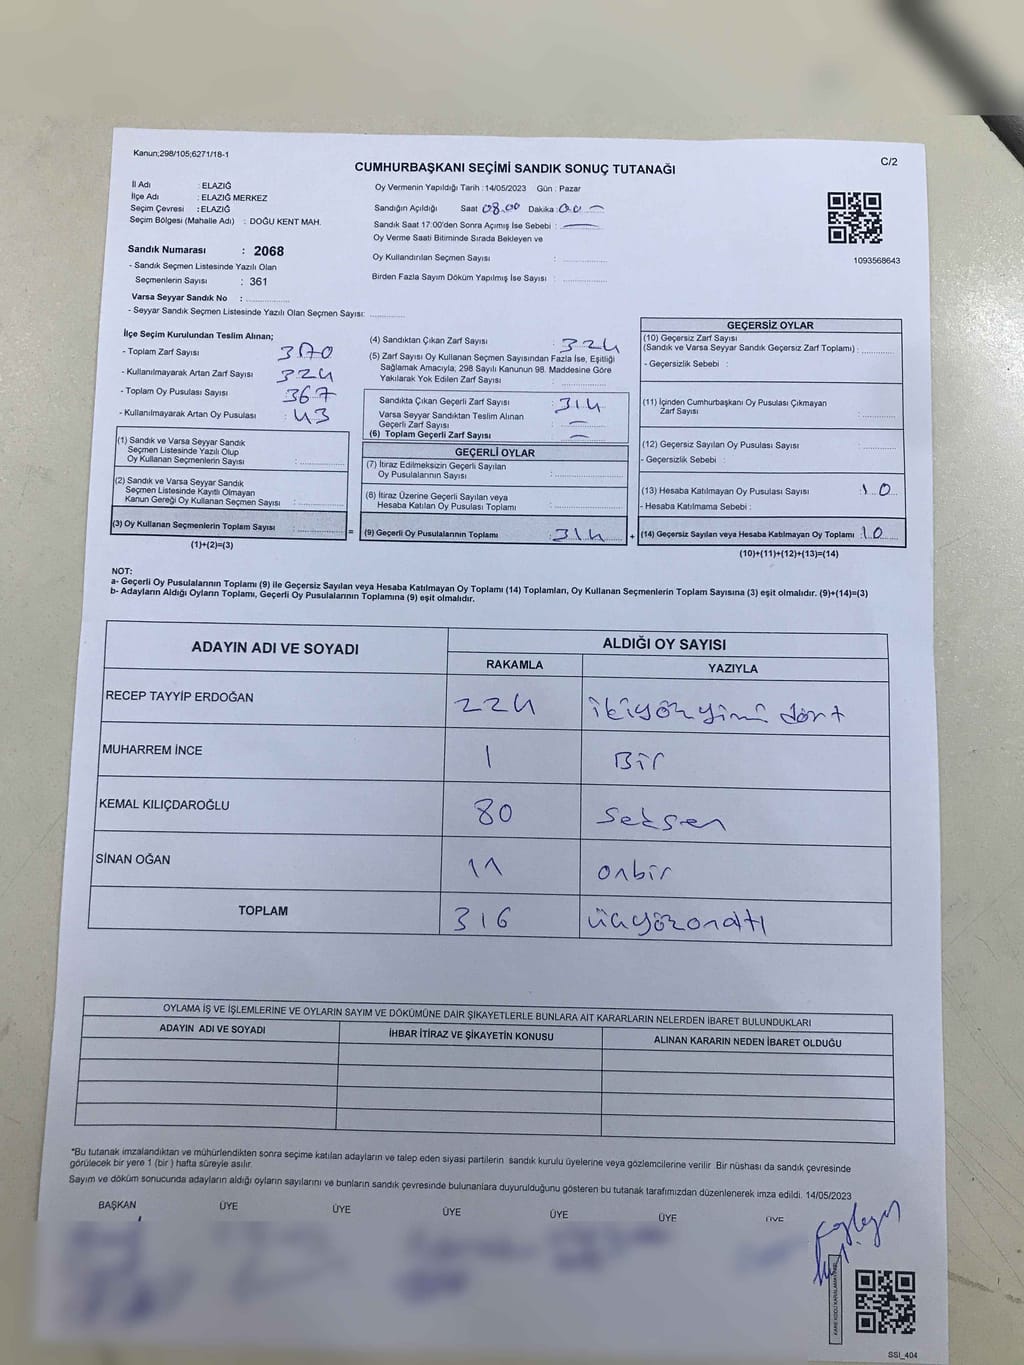 Kanun;298/105;6271/18-1
C/2
CUMHURBAŞKANI SEÇİMİ SANDIK SONUÇ TUTANAĞI
İl Adı : ELAZIĞ
İlçe Adı : ELAZIĞ MERKEZ
Seçim Çevresi : ELAZIĞ
Seçim Bölgesi (Mahalle Adı) : DOĞU KENT MAH.
Sandık Numarası : 2068
- Sandık Seçmen Listesinde Yazılı Olan
Seçmenlerin Sayısı : 361
Varsa Seyyar Sandık No :
- Seyyar Sandık Seçmen Listesinde Yazılı Olan Seçmen Sayısı:
Oy Vermenin Yapıldığı Tarih : 14/05/2023 Gün : Pazar
Sandığın Açıldığı Saat 08.00 Dakika : 00
Sandık Saat 17:00'den Sonra Açımış İse Sebebi :
Oy Verme Saati Bitiminde Sırada Bekleyen ve
Oy Kullandırılan Seçmen Sayısı :
Birden Fazla Sayım Döküm Yapılmış İse Sayısı :
1093568643
İlçe Seçim Kurulundan Teslim Alınan;
- Toplam Zarf Sayısı : 370
- Kullanılmayarak Artan Zarf Sayısı : 324
- Toplam Oy Pusulası Sayısı : 367
- Kullanılmayarak Artan Oy Pusulası : 43
(1) Sandık ve Varsa Seyyar Sandık
Seçmen Listesinde Yazılı Olup
Oy Kullanan Seçmenlerin Sayısı :
(2) Sandık ve Varsa Seyyar Sandık
Seçmen Listesinde Kayıtlı Olmayan
Kanun Gereği Oy Kullanan Seçmen Sayısı :
(3) Oy Kullanan Seçmenlerin Toplam Sayısı :
(1)+(2)=(3)
(4) Sandıktan Çıkan Zarf Sayısı : 324
(5) Zarf Sayısı Oy Kullanan Seçmen Sayısından Fazla İse, Eşitliği
Sağlamak Amacıyla, 298 Sayılı Kanunun 98. Maddesine Göre
Yakılarak Yok Edilen Zarf Sayısı :
Sandıkta Çıkan Geçerli Zarf Sayısı : 314
Varsa Seyyar Sandıktan Teslim Alınan
Geçerli Zarf Sayısı : —
(6) Toplam Geçerli Zarf Sayısı : —
GEÇERLİ OYLAR
(7) İtiraz Edilmeksizin Geçerli Sayılan
Oy Pusulalarının Sayısı :
(8) İtiraz Üzerine Geçerli Sayılan veya
Hesaba Katılan Oy Pusulası Toplamı :
= (9) Geçerli Oy Pusulalarının Toplamı : 314
GEÇERSİZ OYLAR
(10) Geçersiz Zarf Sayısı
(Sandık ve Varsa Seyyar Sandık Geçersiz Zarf Toplamı) :
- Geçersizlik Sebebi :
(11) İçinden Cumhurbaşkanı Oy Pusulası Çıkmayan
Zarf Sayısı :
(12) Geçersiz Sayılan Oy Pusulası Sayısı :
- Geçersizlik Sebebi :
(13) Hesaba Katılmayan Oy Pusulası Sayısı : 10
- Hesaba Katılmama Sebebi :
+ (14) Geçersiz Sayılan veya Hesaba Katılmayan Oy Toplamı : 10
(10)+(11)+(12)+(13)=(14)
NOT:
a- Geçerli Oy Pusulalarının Toplamı (9) ile Geçersiz Sayılan veya Hesaba Katılmayan Oy Toplamı (14) Toplamları, Oy Kullanan Seçmenlerin Toplam Sayısına (3) eşit olmalıdır. (9)+(14)=(3)
b- Adayların Aldığı Oyların Toplamı, Geçerli Oy Pusulalarının Toplamına (9) eşit olmalıdır.
ADAYIN ADI VE SOYADI
ALDIĞI OY SAYISI
RAKAMLA YAZIYLA
RECEP TAYYİP ERDOĞAN 224 ikiyözyimi dört
MUHARREM İNCE 1 Bir
KEMAL KILIÇDAROĞLU 80 Seksen
SİNAN OĞAN 11 onbir
TOPLAM 316 üçyözonaltı
OYLAMA İŞ VE İŞLEMLERİNE VE OYLARIN SAYIM VE DÖKÜMÜNE DAİR ŞİKAYETLERLE BUNLARA AİT KARARLARIN NELERDEN İBARET BULUNDUKLARI
ADAYIN ADI VE SOYADI İHBAR İTİRAZ VE ŞİKAYETİN KONUSU ALINAN KARARIN NEDEN İBARET OLDUĞU
*Bu tutanak imzalandıktan ve mühürlendikten sonra seçime katılan adayların ve talep eden siyasi partilerin sandık kurulu üyelerine veya gözlemcilerine verilir. Bir nüshası da sandık çevresinde
görülecek bir yere 1 (bir ) hafta süreyle asılır.
Sayım ve döküm sonucunda adayların aldığı oyların sayılarını ve bunların sandık çevresinde bulunanlara duyurulduğunu gösteren bu tutanak tarafımızdan düzenlenerek imza edildi. 14/05/2023
BAŞKAN ÜYE ÜYE ÜYE ÜYE ÜYE ÜYE
SSI_404